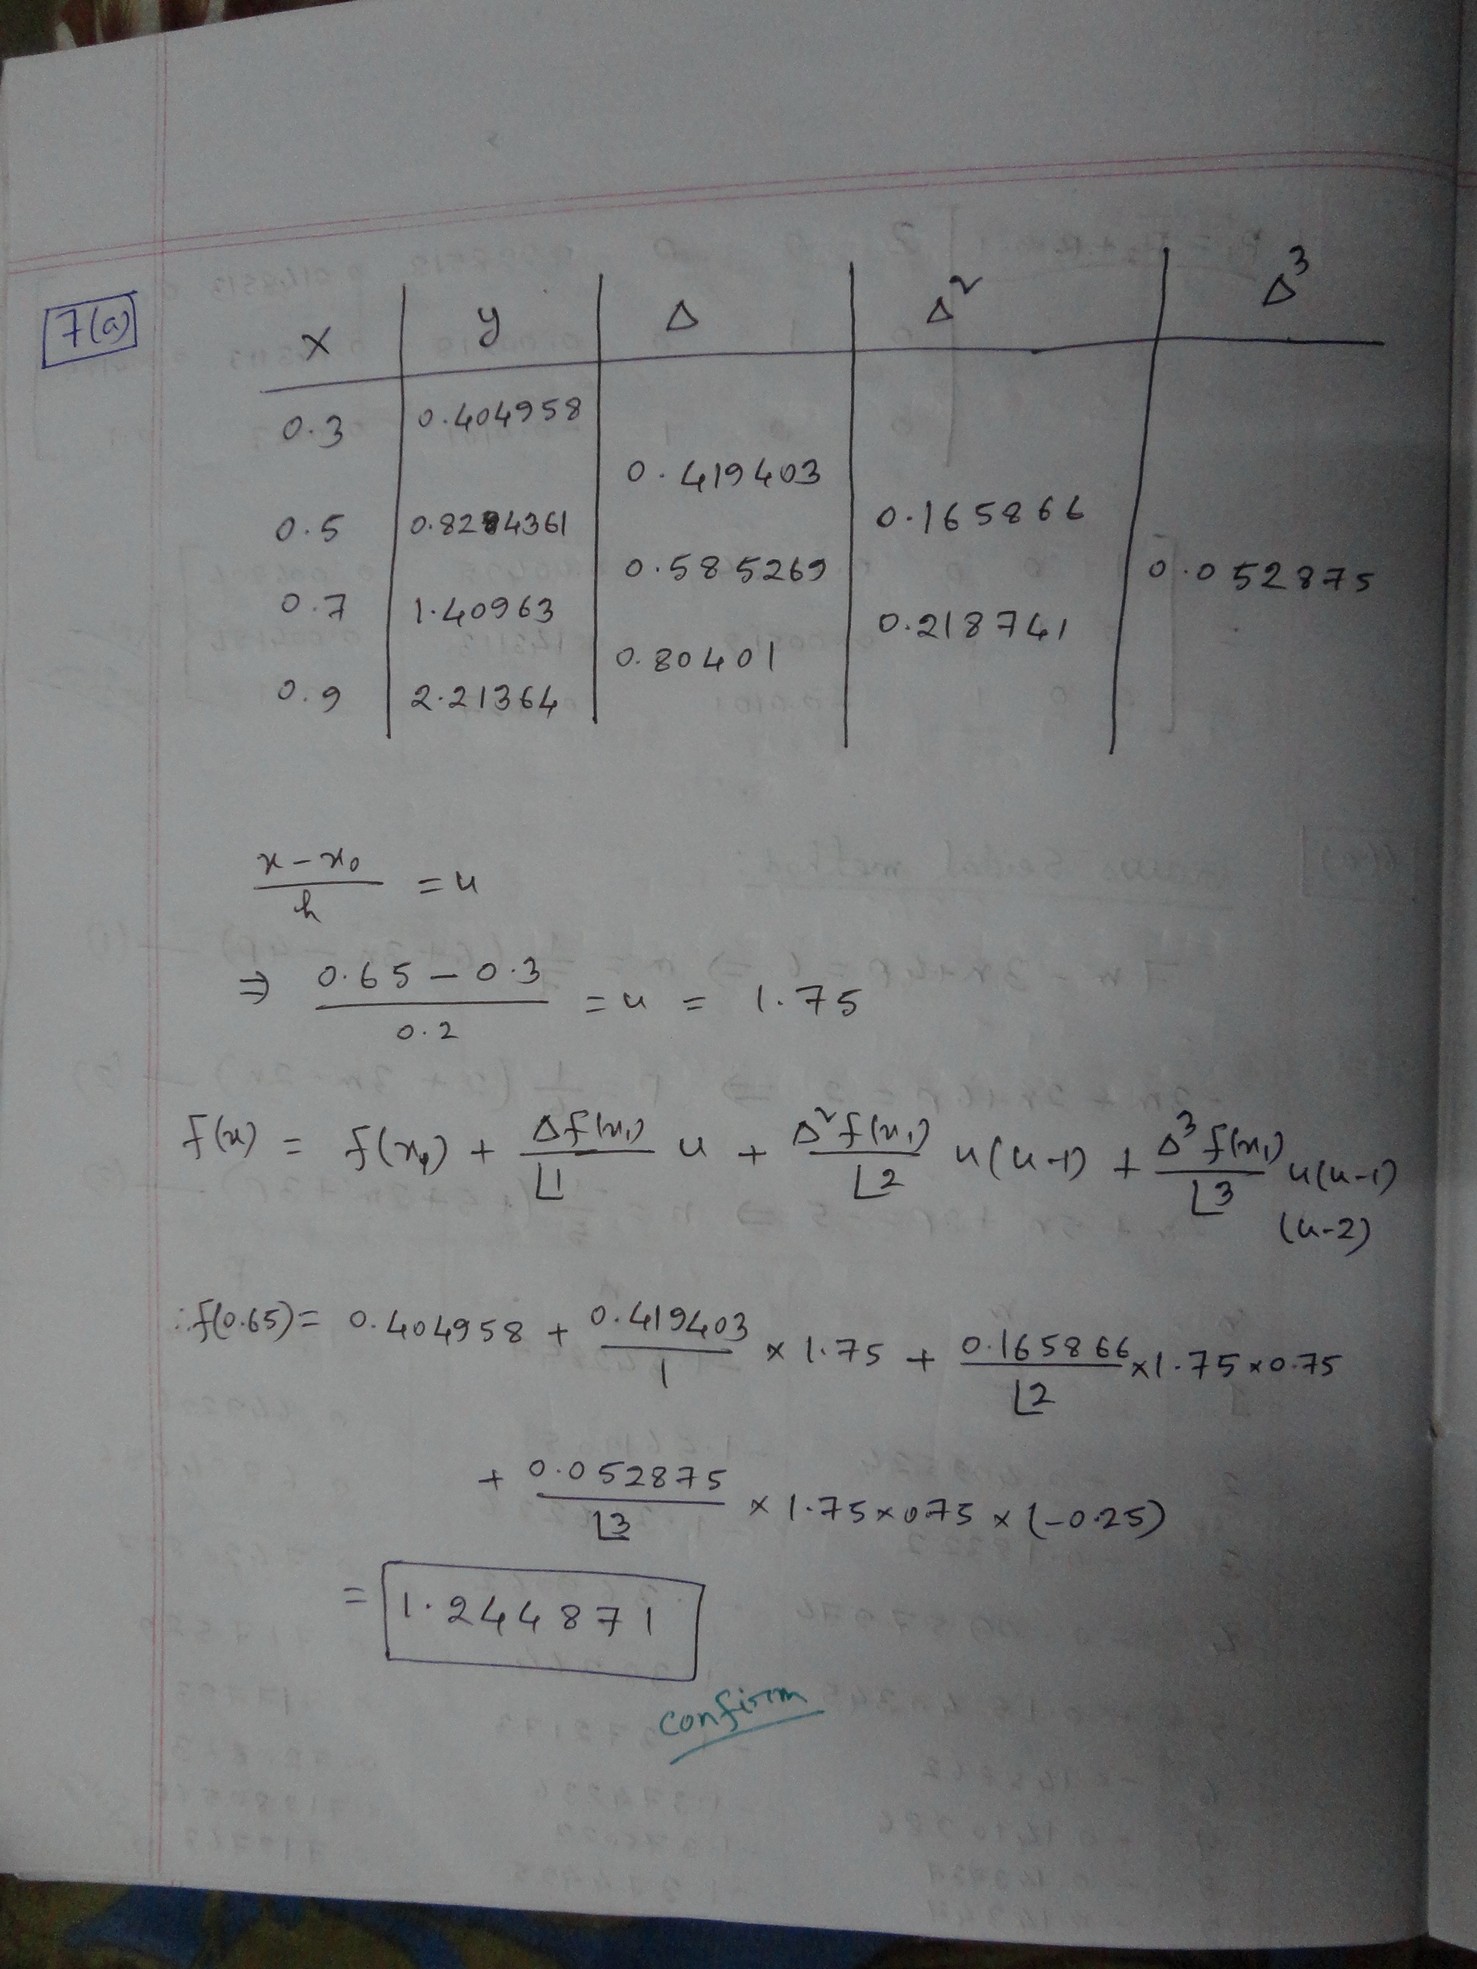 7(a)
x y Δ Δ² Δ³
0.3 0.404958
0.419403
0.5 0.8284361 0.165866
0.585269 0.052875
0.7 1.40963 0.218741
0.80401
0.9 2.21364
x - x₀ / h = u
⇒ 0.65 - 0.3 / 0.2 = u = 1.75
f(x) = f(x₁) + Δf(x₁) / ⌊1 u + Δ²f(x₁) / ⌊2 u(u-1) + Δ³f(x₁) / ⌊3 u(u-1)
(u-2)
∴ f(0.65) = 0.404958 + 0.419403 / 1 × 1.75 + 0.165866 / ⌊2 × 1.75 × 0.75
+ 0.052875 / ⌊3 × 1.75 × 0.75 × (-0.25)
= 1.244871
confirm